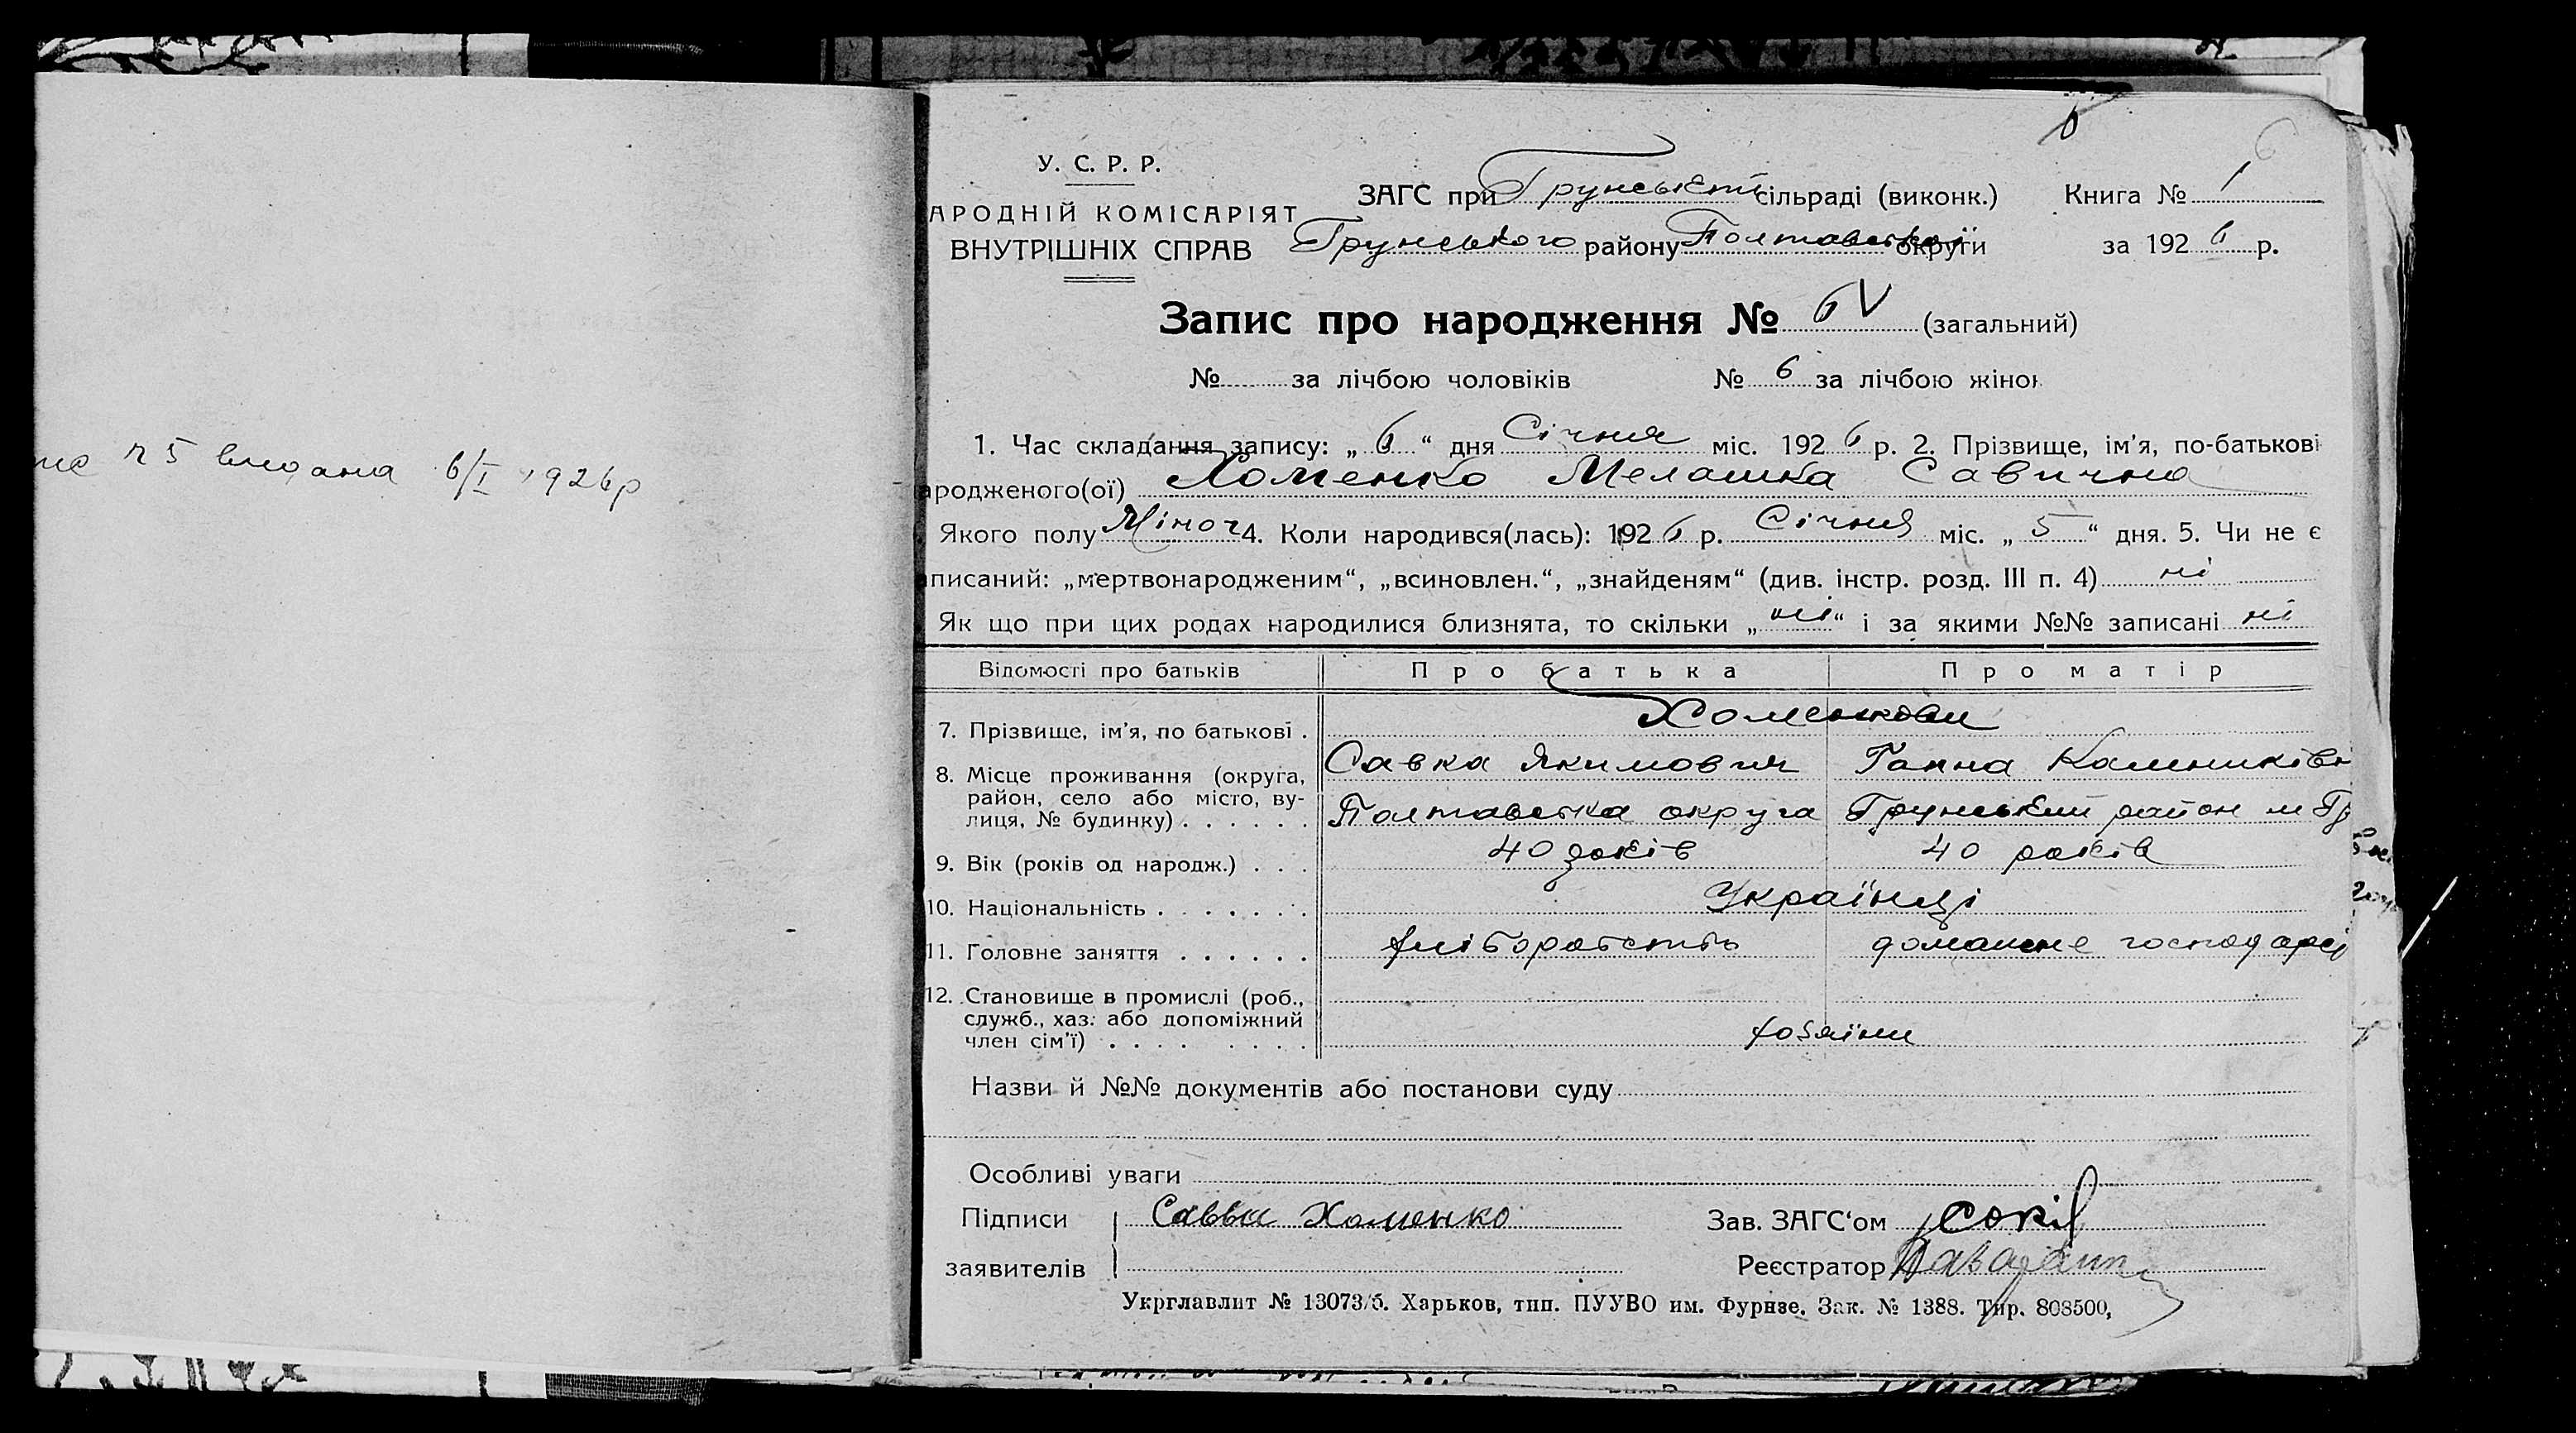 № 5 видана 6/I 1926р
6
У. С. Р. Р.
АРОДНІЙ КОМІСАРІЯТ
ВНУТРІШНІХ СПРАВ
ЗАГС при Грунській сільраді (виконк.) Книга № 1
Грунського району Полтавської округи за 1926 р.
Запис про народження № 6 V (загальний)
№ за лічбою чоловіків № 6 за лічбою жінок
1. Час складання запису: „ 6 “ дня Січня міс. 1926 р. 2. Прізвище, ім’я, по-батькові
ародженого(ої) Хоменко Мелашка Савична
Якого полу Жіноч 4. Коли народився(лась): 1926 р. Січня міс. „ 5 “ дня. 5. Чи не є
писаний: „мертвонародженим“, „всиновлен.“, „знайденям“ (див. інстр. розд. III п. 4) ні
Як що при цих родах народилися близнята, то скільки „ ні “ і за якими №№ записані ні
Відомості про батьків Про батька Про матір
7. Прізвище, ім’я, по батькові . Хоменкови
Савка Якимович Ганна Калениківн
8. Місце проживання (округа,
район, село або місто, ву-
лиця, № будинку) . . . . . . Полтавська округа Грунський район м Гр
9. Вік (років од народж.) . . . 40 років 40 років
10. Національність . . . . . . . Українці
11. Головне заняття . . . . . . хліборобство домашнє господарс
12. Становище в промислі (роб.,
служб., хаз. або допоміжний
член сім’ї) . . . . . . . . хозяїни
Назви й №№ документів або постанови суду
Особливі уваги
Підписи Савва Хоменко Зав. ЗАГС‘ом
заявителів Реєстратор
Укрглавлит № 13073/б. Харьков, тип. ПУУВО им. Фурнзе. Зак. № 1388. Тир. 808500,